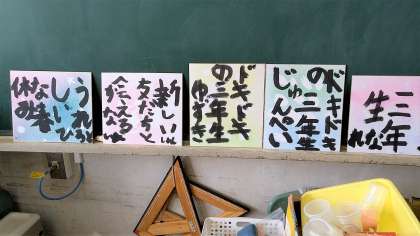 うれしいひ
なし
休み
新しい
友だちと
会えるかな
ドキドキ
の三年生
ゆずき
ドキドキ
の三年生
じゅんぺい
三年
生
れな